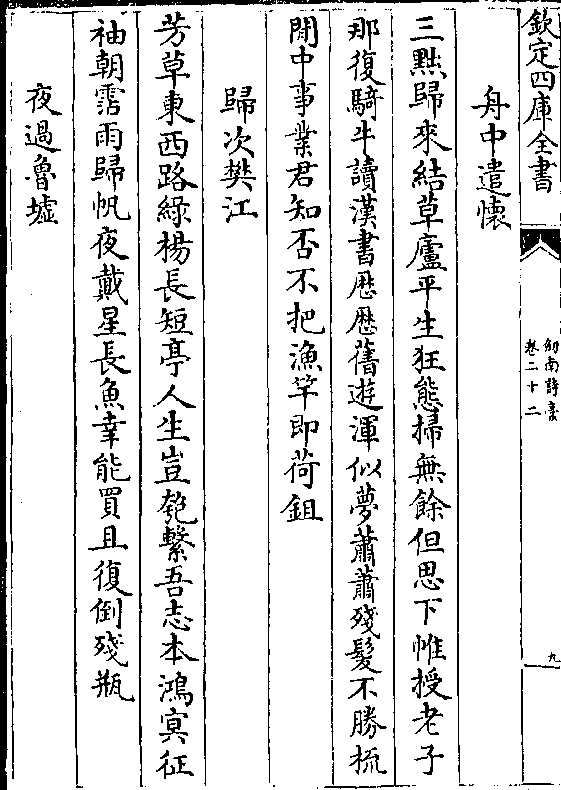 欽定四庫全書
劒南詩稾
卷二十二
九
舟中遣懷
三㸃歸來結草廬平生狂態掃無餘但思下帷授老子
那復騎牛讀漢書歴歴舊遊渾似夢蕭蕭殘髪不勝梳
閒中事業君知否不把漁竿即荷鉏
歸次樊江
芳草東西路緑楊長短亭人生豈匏繫吾志本鴻㝠征
袖朝霑雨歸帆夜戴星長魚幸能買且復倒殘瓶
夜過魯墟